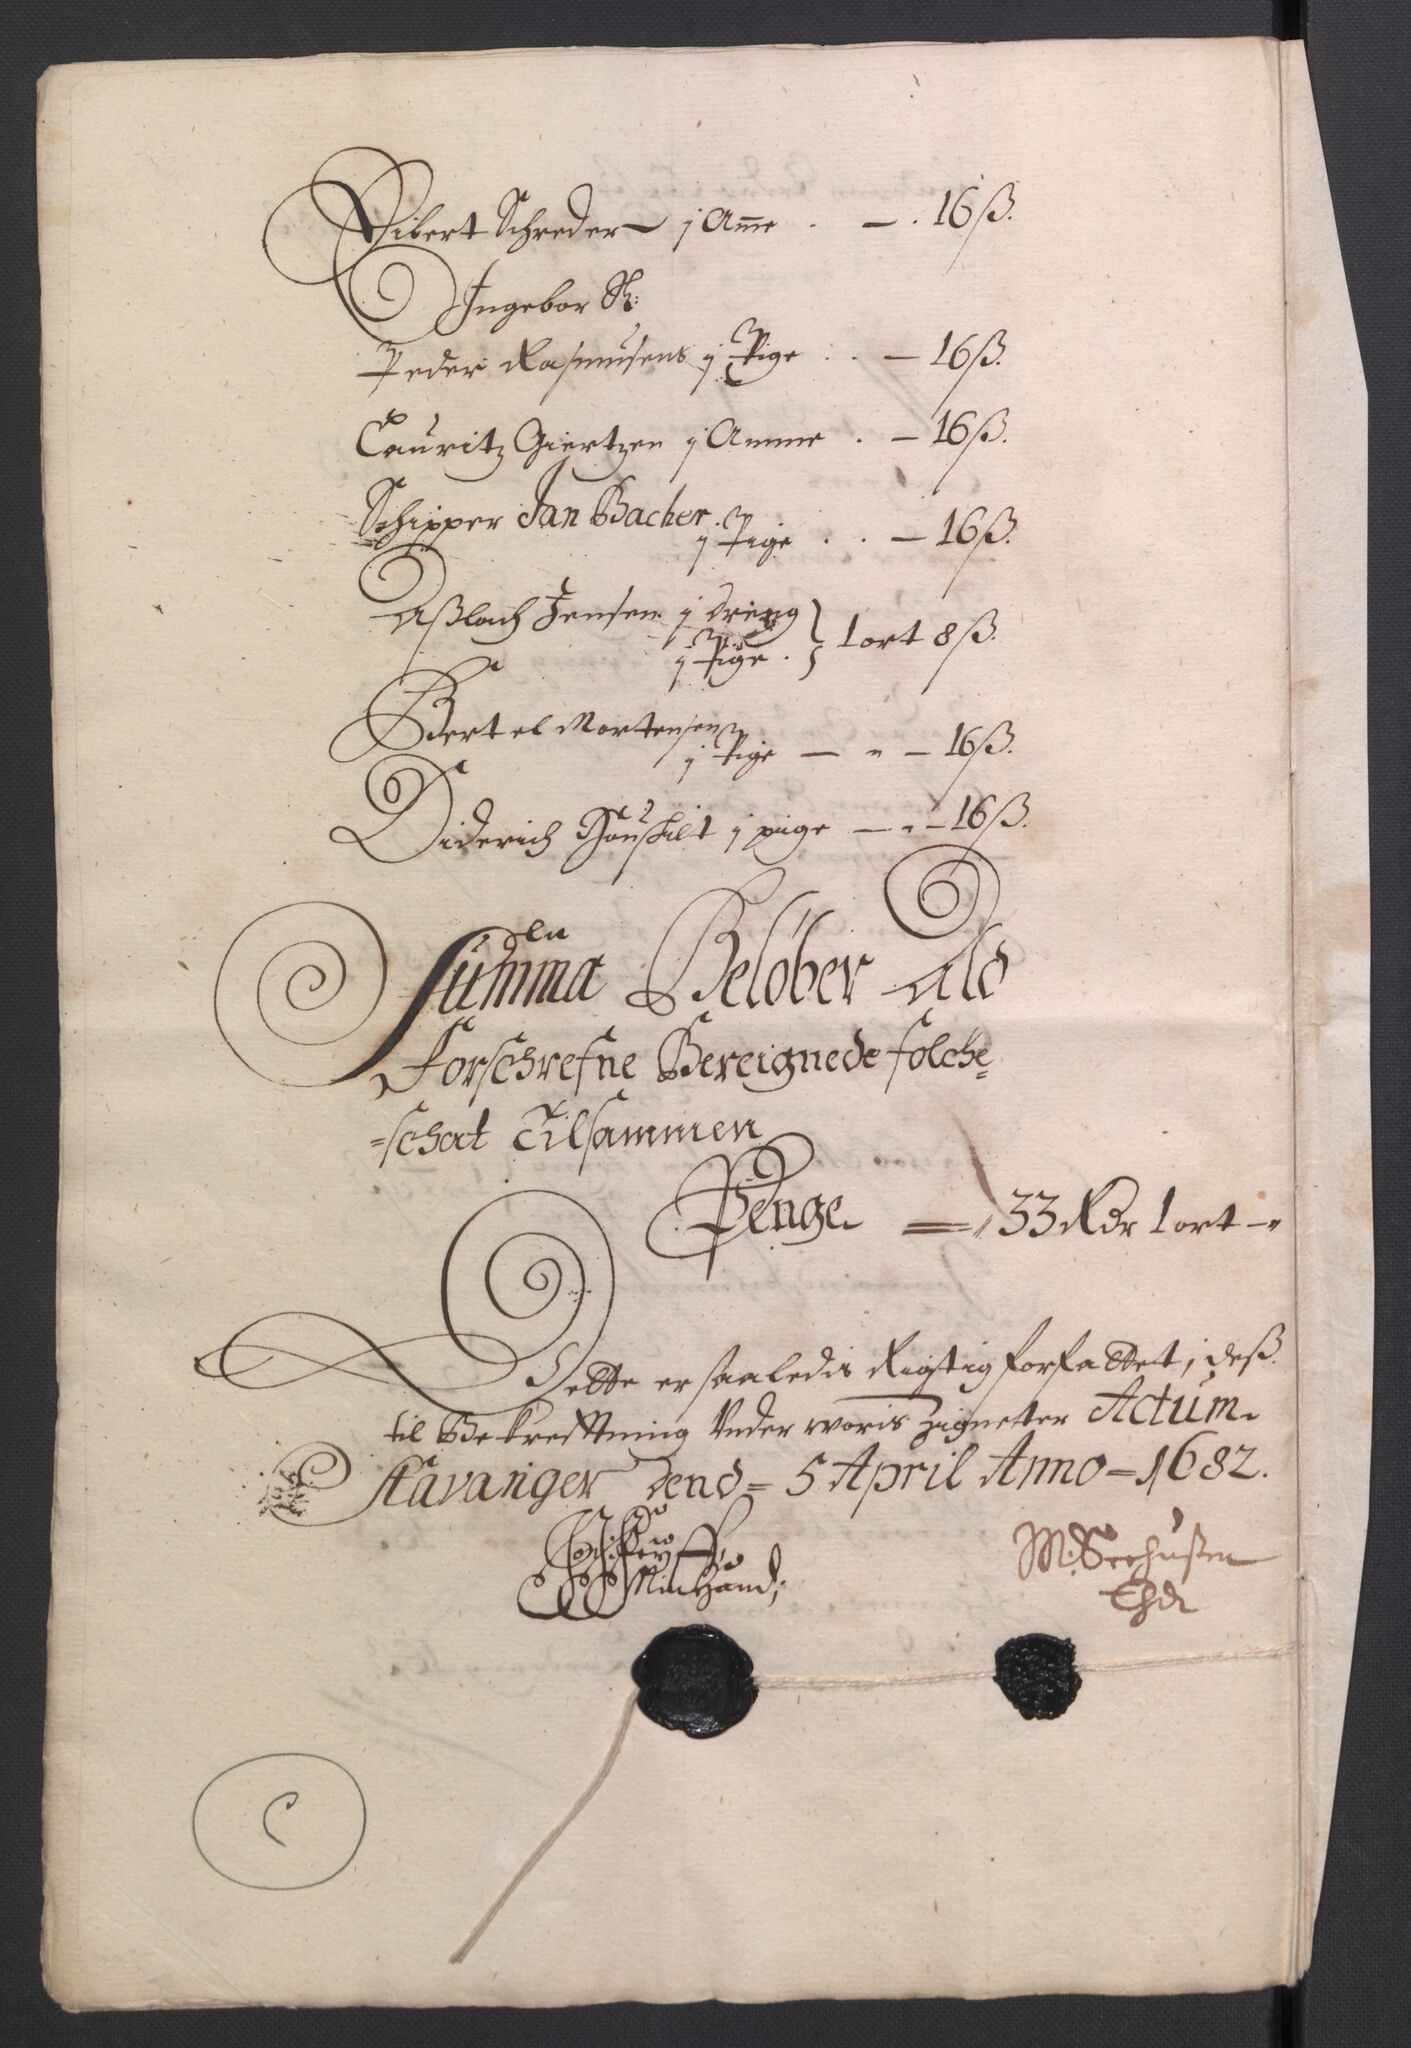 Vibert Schreder j Ame . — . 16 ß.
Ingebor Sl:
Peder Rasmusens j Pige . . — 16 ß.
Lauritz Giertzen j Amme . — 16 ß.
Schipper Jan Backer
j Pige . . — 16 ß.
Aßlach Jensen j dreng
j Pige . } 1 ort 8 ß.
Bertel Mortensen
j Pige — " — 16 ß.
Diderich j pige — " — 16 ß.
Summa Beløber Ald
Forschrefne Bereignede folche-
=schat Tilsammen
Penge = 33 Rdr 1 ort — "
Dette er saaledis Rigtig forfattet, deß
til Bekrefttning Under woris Zignetter Actum
Stavanger dend = 5 April Anno = 1682.
Min Hand;
M. Seehußen